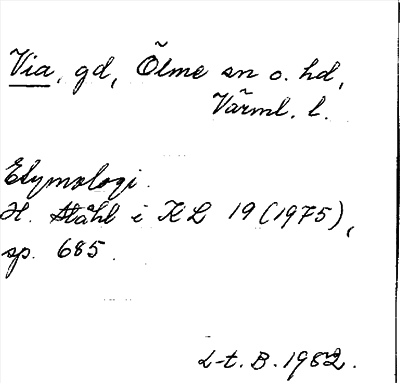 Via, gd, Ölme sn o. hd,
Värml. l.
Etymologi.
H. Ståhl i KL 19 (1975),
sp. 685.
L-t. B. 1982.